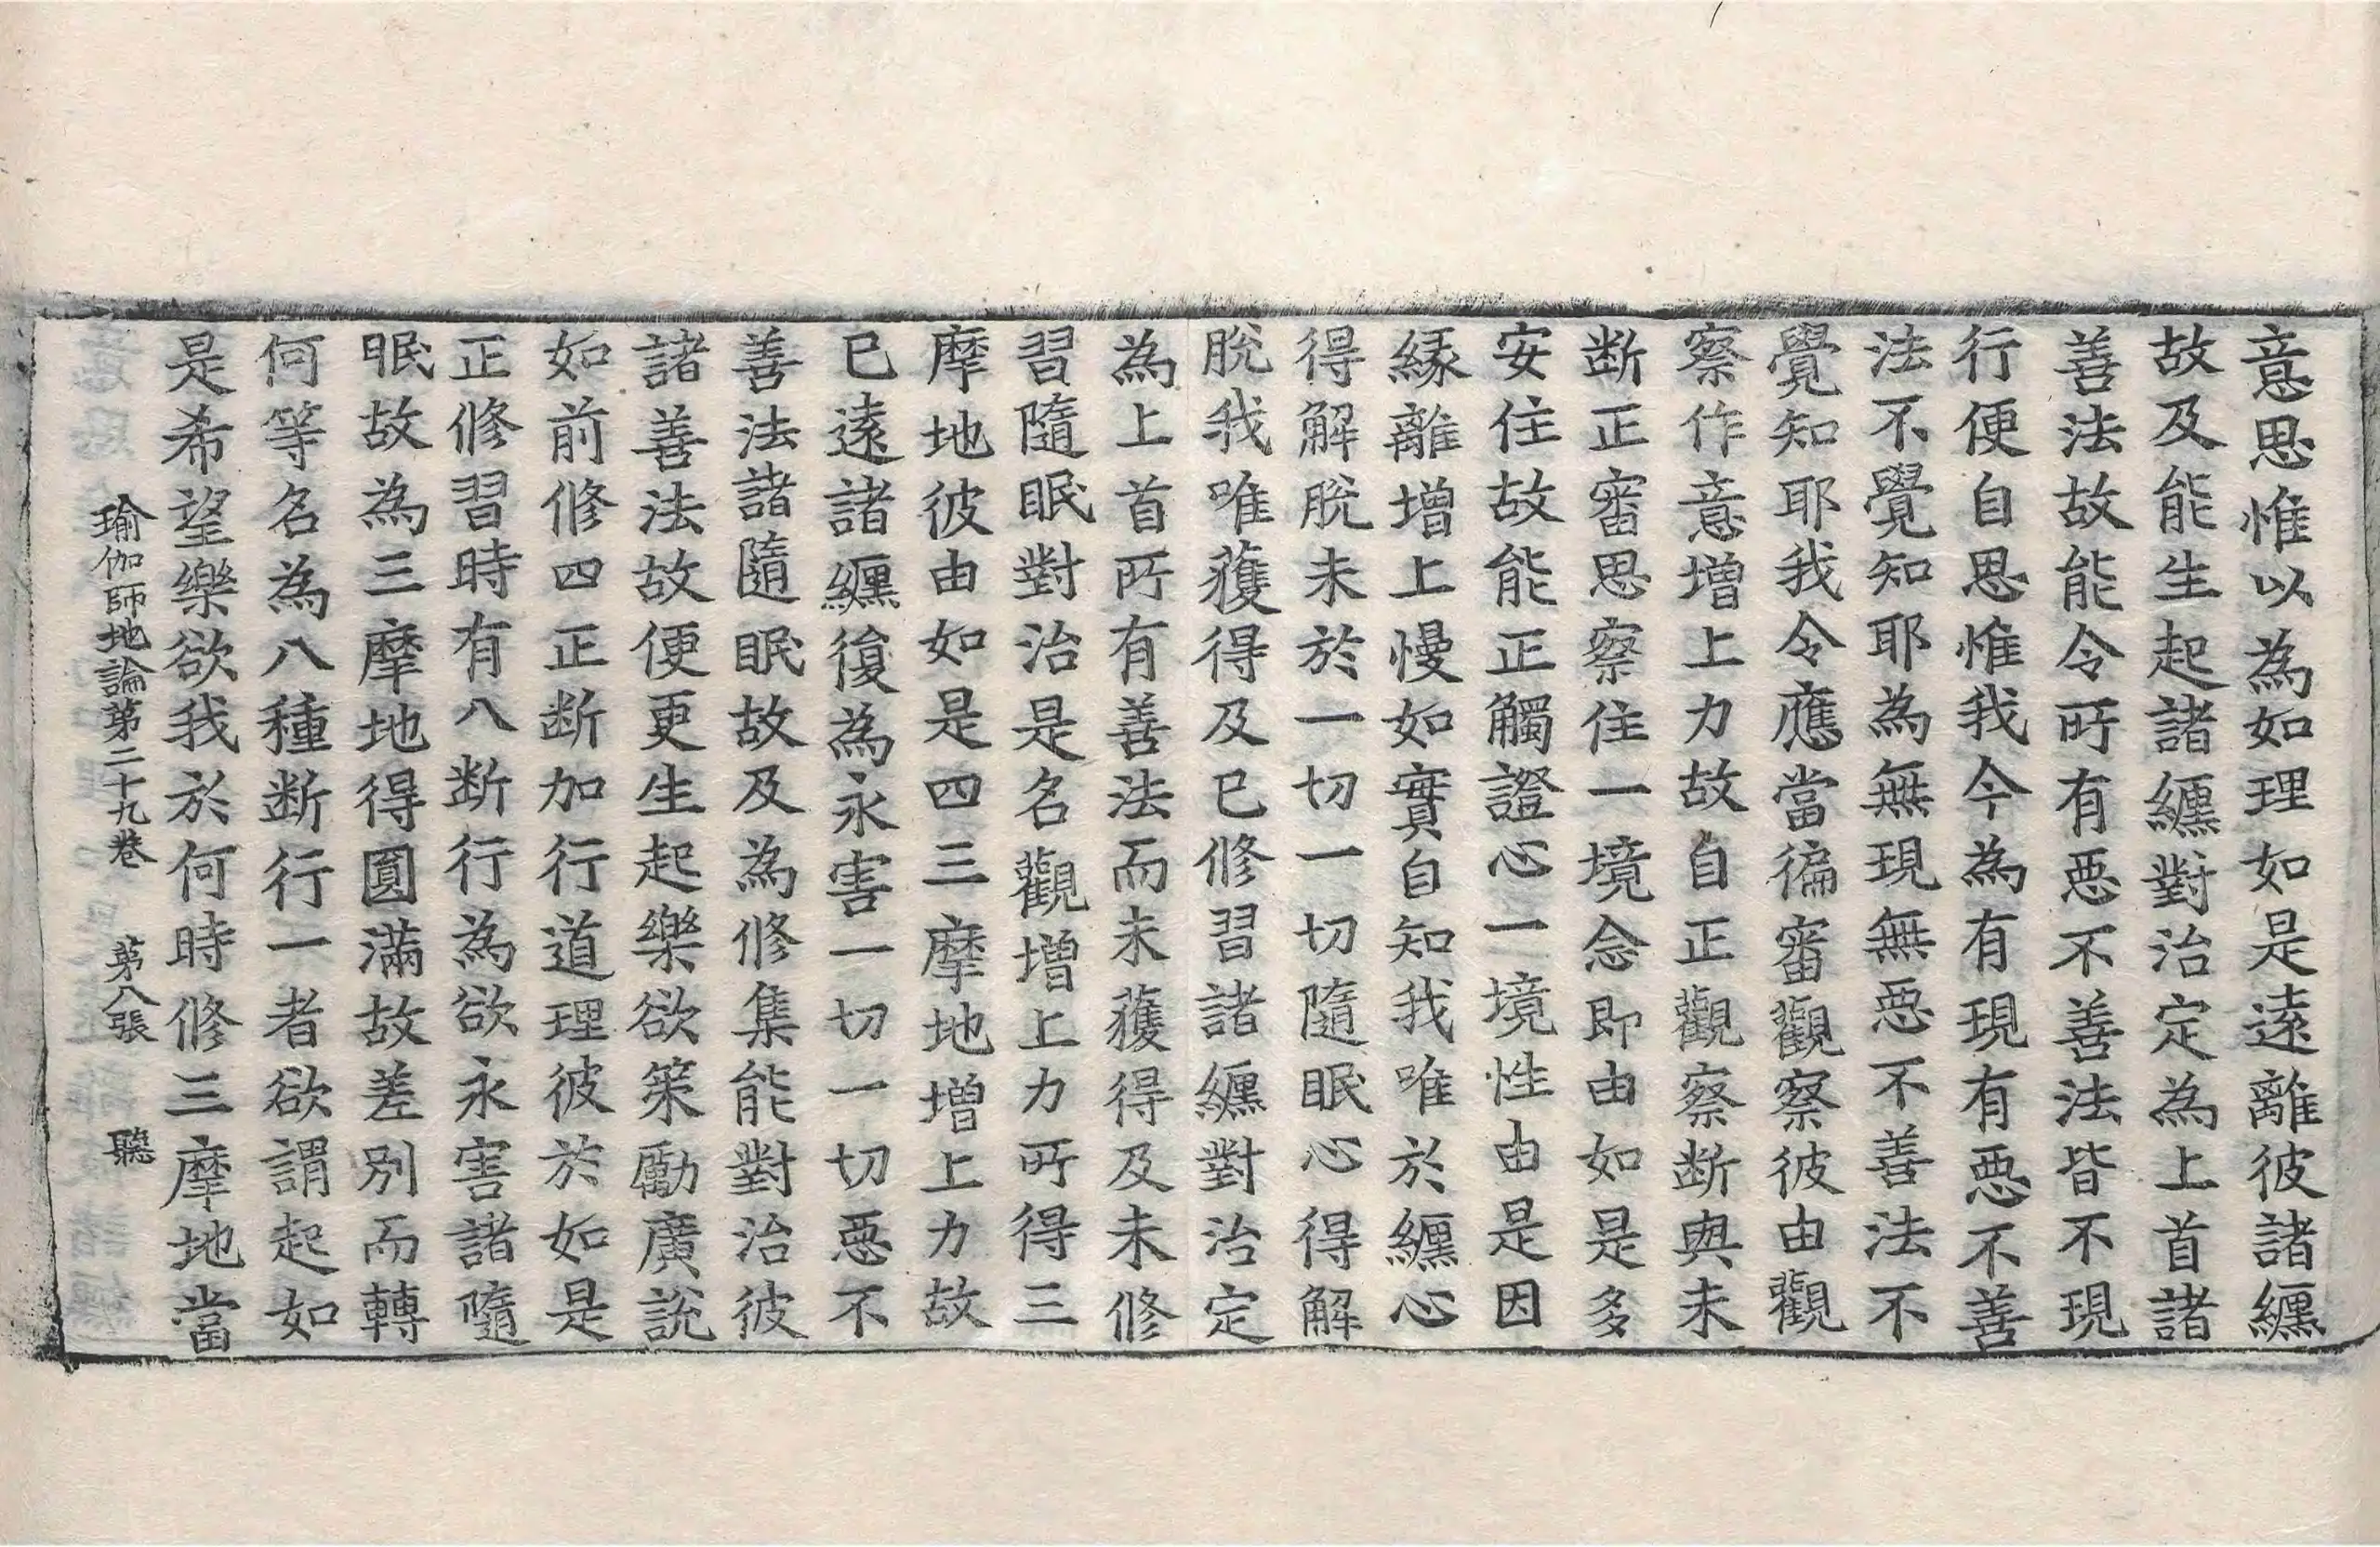 意思惟以為如理如是遠離彼諸纏
故及能生起諸纏對治定為上首諸
善法故能令所有惡不善法皆不現
行便自思惟我今為有現有惡不善
法不覺知耶為無現無惡不善法不
覺知耶我今應當徧審觀察彼由觀
察作意增上力故自正觀察断與未
断正審思察住一境念即由如是多
安住故能正觸證心一境性由是因
緣離增上慢如實自知我唯於纏心
得解脫未於一切一切隨眠心得解
脫我唯獲得及已修習諸纏對治定
為上首所有善法而未獲得及未修
習隨眠對治是名觀增上力所得三
摩地彼由如是四三摩地增上力故
已遠諸纏復為永害一切一切惡不
善法諸隨眠故及為修集能對治彼
諸善法故便更生起樂欲策勵廣說
如前修四正断加行道理彼於如是
正修習時有八断行為欲永害諸隨
眠故為三摩地得圓滿故差別而轉
何等名為八種断行一者欲謂起如
是希望樂欲我於何時修三摩地當
瑜伽師地論第二十九卷 第八張 聽